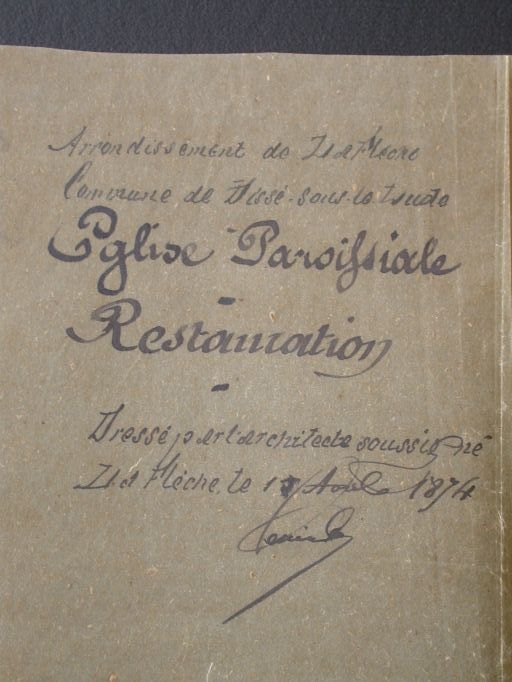 Arrondissement de La Flèche
Commune de Dissé-sous-le Lude
Eglise Paroissiale
-
Restauration
-
Dressé par l'architecte soussigné
La Flèche, le 1 Avril 1874